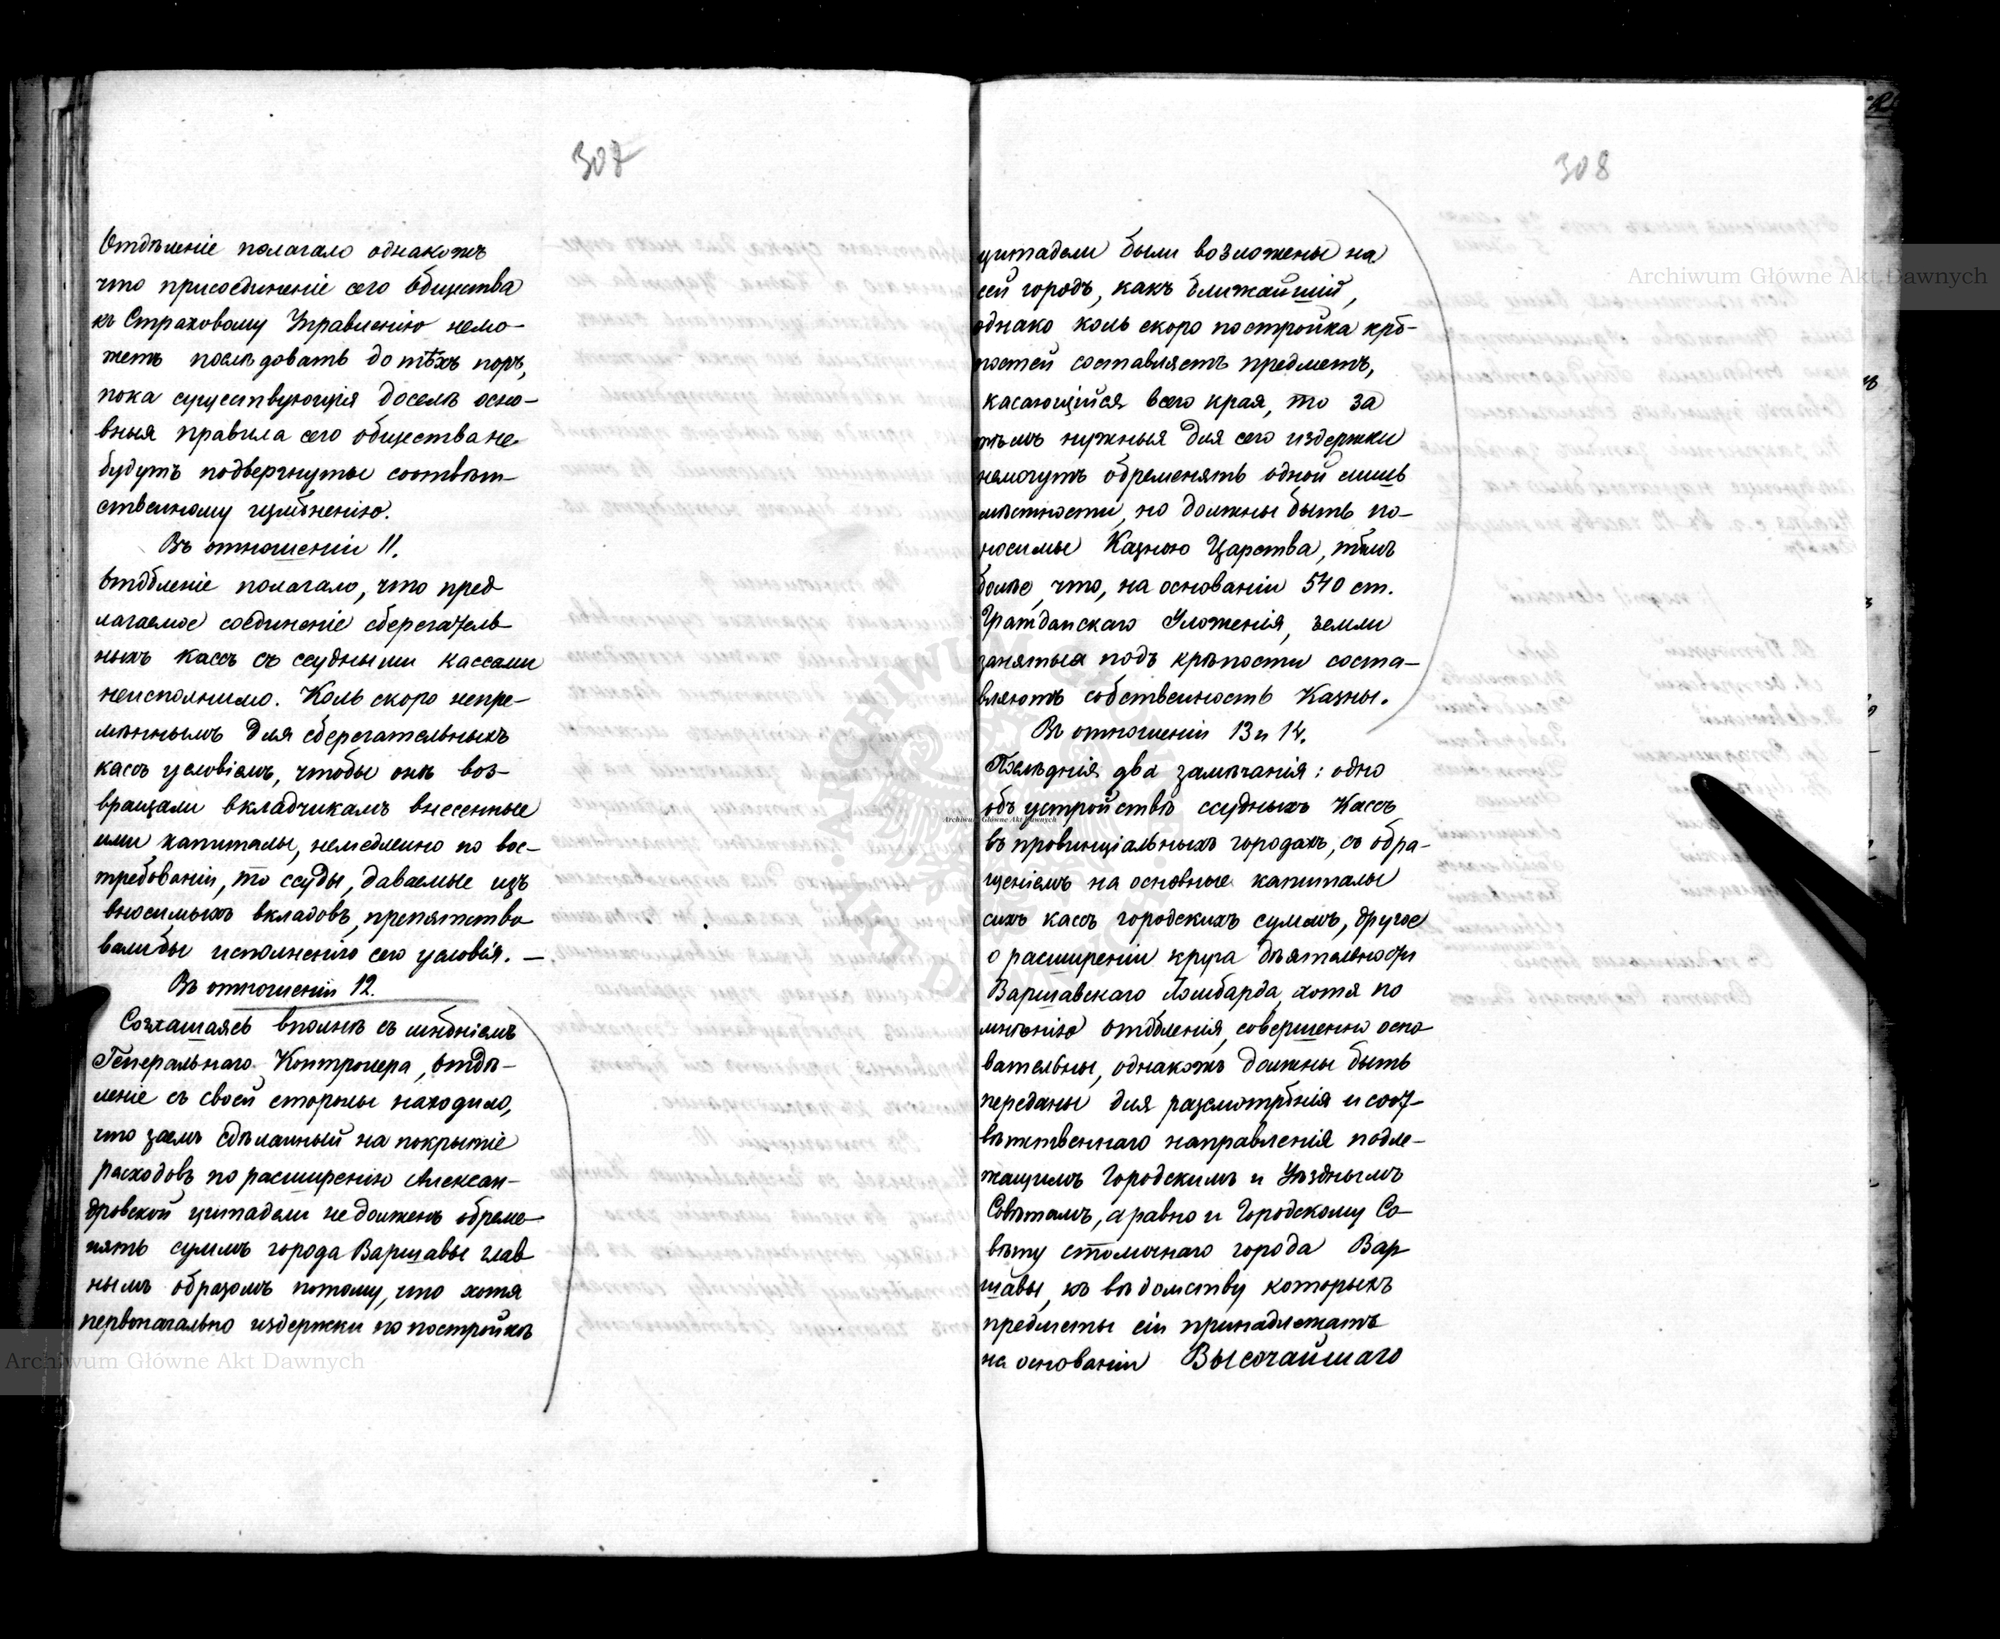 307
Отдѣленіе полагало однакожъ
что присоединеніе сего Общества
къ Страховому Управленію немо-
жетъ послѣдовать до тѣхъ поръ,
пока существующія доселѣ осно-
вныя правила сего общества не
будутъ подвергнуты соотвѣт-
ственному измѣненію.
Въ отношеніи 11.
Отдѣленіе полагало, что пред
лагаемое соединеніе сберегатель
ныхъ кассъ съ ссудными кассами
неисполнимо. Коль скоро непре-
мѣннымъ для сберегательныхъ
кассъ условіемъ, чтобы онѣ воз-
вращали вкладчикамъ внесенные
ими капиталы, немедленно по вос-
требованіи, то ссуды, даваемые изъ
вносимыхъ вкладовъ, препятство
вали бы исполненію сего условія. —
Въ отношеніи 12.
Соглашаясь вполнѣ съ мнѣніемъ
Генеральнаго Контролера, Отдѣ-
леніе съ своей стороны находило,
что заемъ сдѣланный на покрытіе
расходовъ по расширенію Алексан-
дровской цитадели не долженъ обреме-
нять суммъ города Варшавы глав
нымъ образомъ потому, что хотя
первоначально издержки по постройкѣ
308
цитадели были возложены на
сей городъ, какъ ближайшій,
однако коль скоро постройка крѣ-
постей составляетъ предметъ,
касающійся всего края, то за
тѣмъ нужныя для сего издержки
немогутъ обременять одной лишь
мѣстности, но должны быть по-
носимы Казною Царства, тѣмъ
болѣе, что, на основаніи 540 ст.
Гражданскаго Уложенія, земли
занятыя подъ крѣпости соста-
вляютъ собственность Казны.
Въ отношеніи 13 и 14.
Послѣднія два замѣчанія: одно
объ устройствѣ ссудныхъ Кассъ
въ провинціальныхъ городахъ, съ обра-
щеніемъ на основные капиталы
сихъ кассъ городскихъ суммъ, другое
о расширеніи круга дѣятельности
Варшавскаго Ломбарда, хотя по
мнѣнію Отдѣленія, совершенно осно-
вательны, однакожъ должны быть
переданы для разсмотрѣнія и соот-
вѣтственнаго направленія подле-
жащимъ Городскимъ и Уѣзднымъ
Совѣтамъ, а равно и Городскому Со-
вѣту столичнаго города Вар
шавы, къ вѣдомству которыхъ
предметы сіи принадлежатъ
на основаніи Высочайшаго
Archiwum Główne Akt Dawnych
Archiwum Główne Akt Dawnych
Archiwum Główne Akt Dawnych